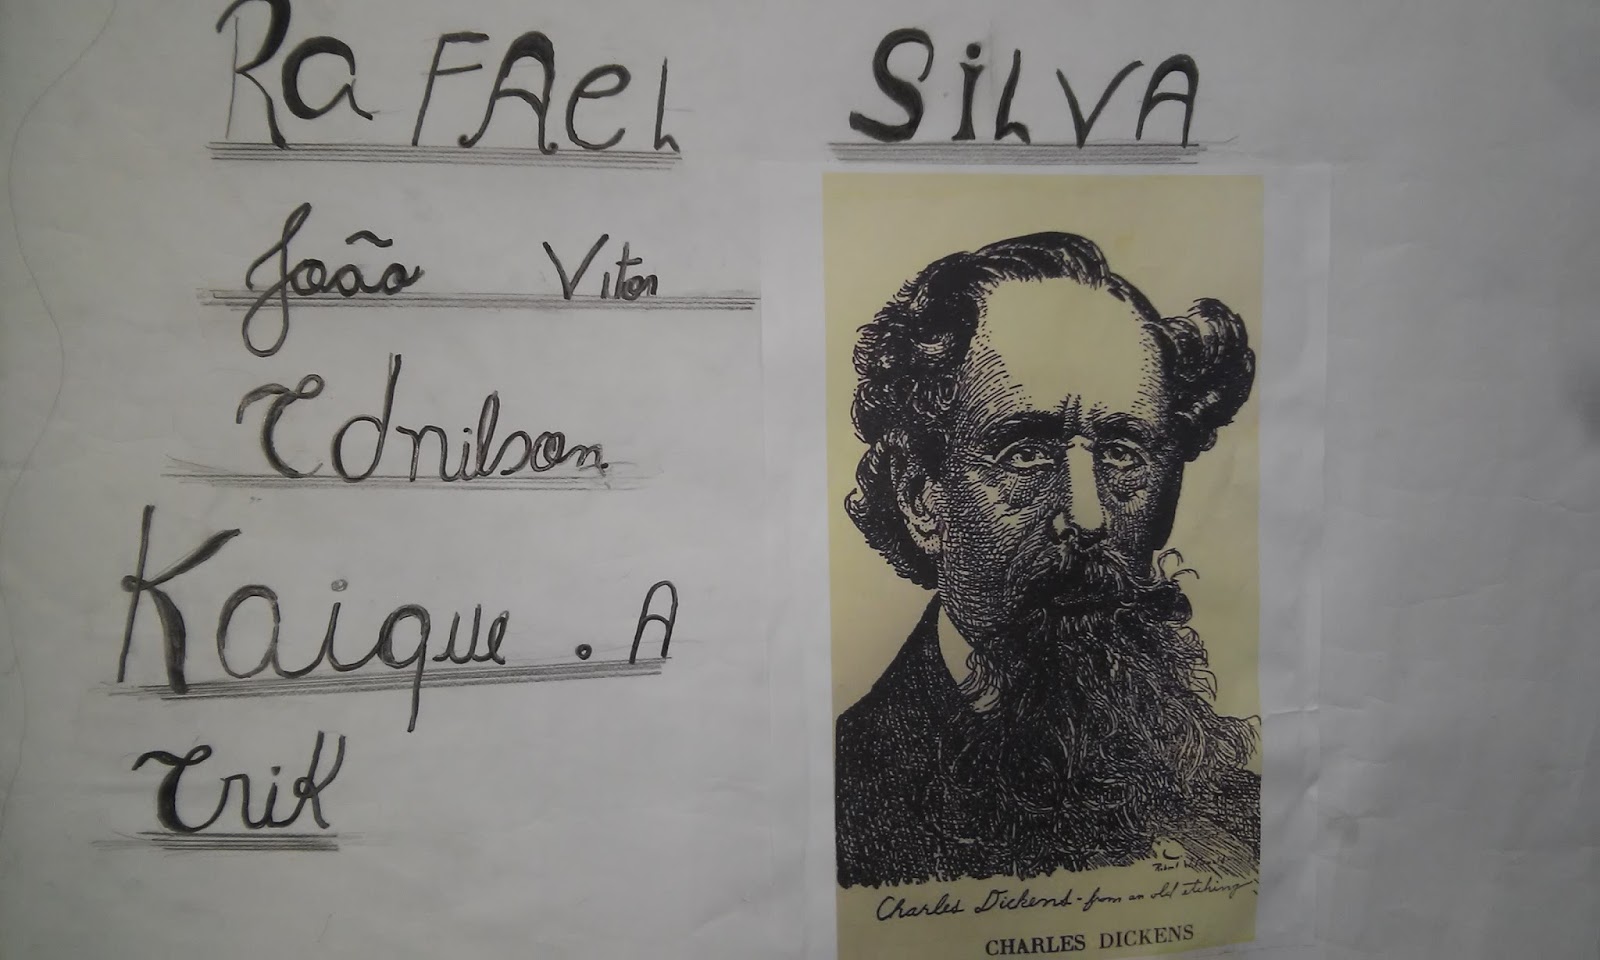 RaFAeL SiLVA
João Vitor
Ednilson
Kaique . A
Erik
Charles Dickens - from an old etching
CHARLES DICKENS